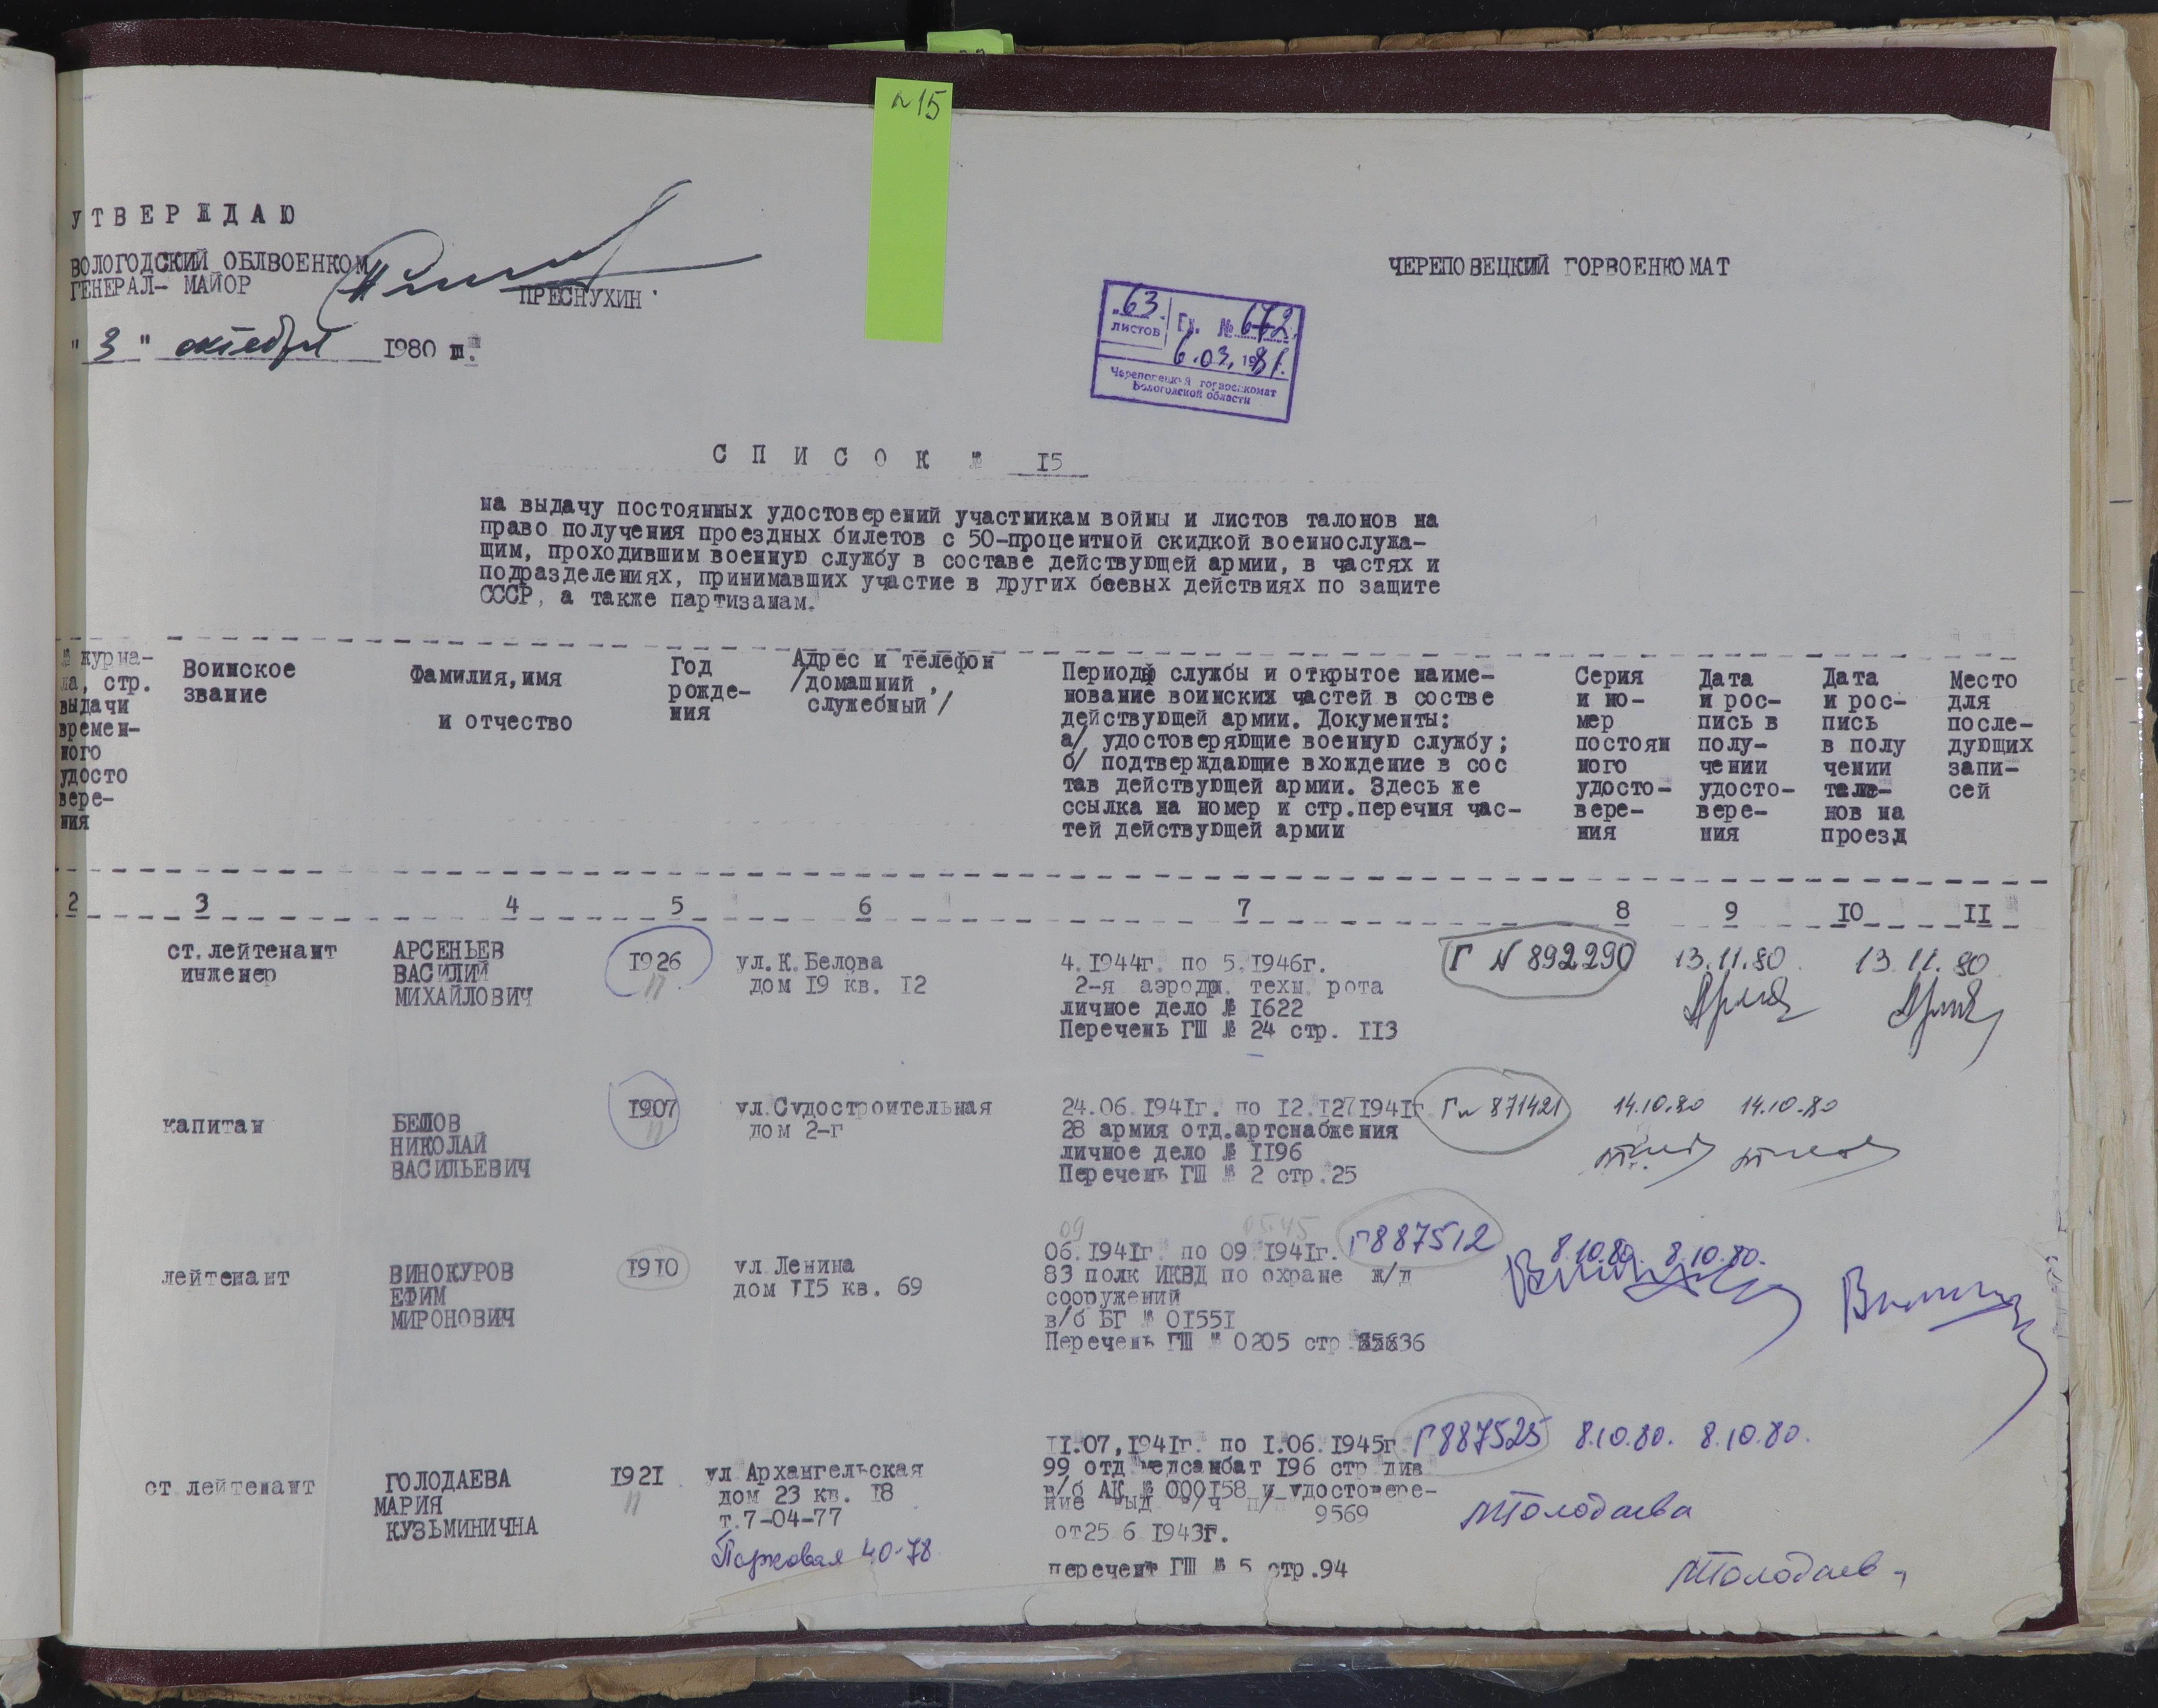 №15
УТВЕРЖДАЮ
ВОЛОГОДСКИЙ ОБЛВОЕНКОМ
ГЕНЕРАЛ- МАЙОР
ПРЕСНУХИН
"3" октября 1980 г.
ЧЕРЕПОВЕЦКИЙ ГОРВОЕНКОМАТ
63
листов
Гр. № 672
6.03.1981.
Череповецкий горвоенкомат
Вологодской области
СПИСОК № 15
на выдачу постоянных удостоверений участникам войны и листов талонов на
право получения проездных билетов с 50-процентной скидкой военнослужа-
щим, проходившим военную службу в составе действующей армии, в частях и
подразделениях, принимавших участие в других боевых действиях по защите
СССР, а также партизанам.
№ журна-
ла, стр.
выдачи
времен-
ного
удосто
вере-
ния
Воинское
звание
Фамилия, имя
и отчество
Год
рожде-
ния
Адрес и телефон
/домашний,
служебный/
Периоды службы и открытое наиме-
нование воинских частей в составе
действующей армии. Документы:
а/ удостоверяющие военную службу;
б/ подтверждающие вхождение в сос
тав действующей армии. Здесь же
ссылка на номер и стр.перечня час-
тей действующей армии
Серия
и но-
мер
постоян
ного
удосто-
вере-
ния
Дата
и рос-
пись в
полу-
чении
удосто-
вере-
ния
Дата
и рос-
пись
в полу
чении
тало-
нов на
проезд
Место
для
после-
дующих
запи-
сей
2 3 4 5 6 7 8 9 10 11
ст. лейтенант
инженер
АРСЕНЬЕВ
ВАСИЛИЙ
МИХАЙЛОВИЧ
1926
ул. К. Белова
дом 19 кв. 12
4.1944г. по 5.1946г.
2-я аэродр. техн. рота
личное дело № 1622
Перечень ГШ № 24 стр. 113
Г № 892290
13.11.80
13.11.80
капитан
БЕЛОВ
НИКОЛАЙ
ВАСИЛЬЕВИЧ
1907
ул.Судостроительная
дом 2-г
24.06.1941г. по 12.12.1941г
28 армия отд.артснабжения
личное дело № 1196
Перечень ГШ № 2 стр.25
Г№ 871421
14.10.80
14.10.80
лейтенант
ВИНОКУРОВ
ЕФИМ
МИРОНОВИЧ
1910
ул Ленина
дом 115 кв. 69
09 05.45
06.1941г. по 09.1941г.
83 полк НКВД по охране ж/д
сооружений
в/б БГ № 01551
Перечень ГШ № 0205 стр 36
Г887512
8.10.80.
8.10.80.
ст лейтенант
ГОЛОДАЕВА
МАРИЯ
КУЗЬМИНИЧНА
1921
ул Архангельская
дом 23 кв. 18
т.7-04-77
Парковая 40-78
11.07.1941г. по 1.06.1945г
99 отд медсанбат 196 стр див
в/б АК № 000158 и удостовере-
ние выд в/ч п/п 9569
от25 6 1943г.
перечент ГШ № 5 стр.94
Г887525
8.10.80.
8.10.80.
МГолодаева
МГолодаев